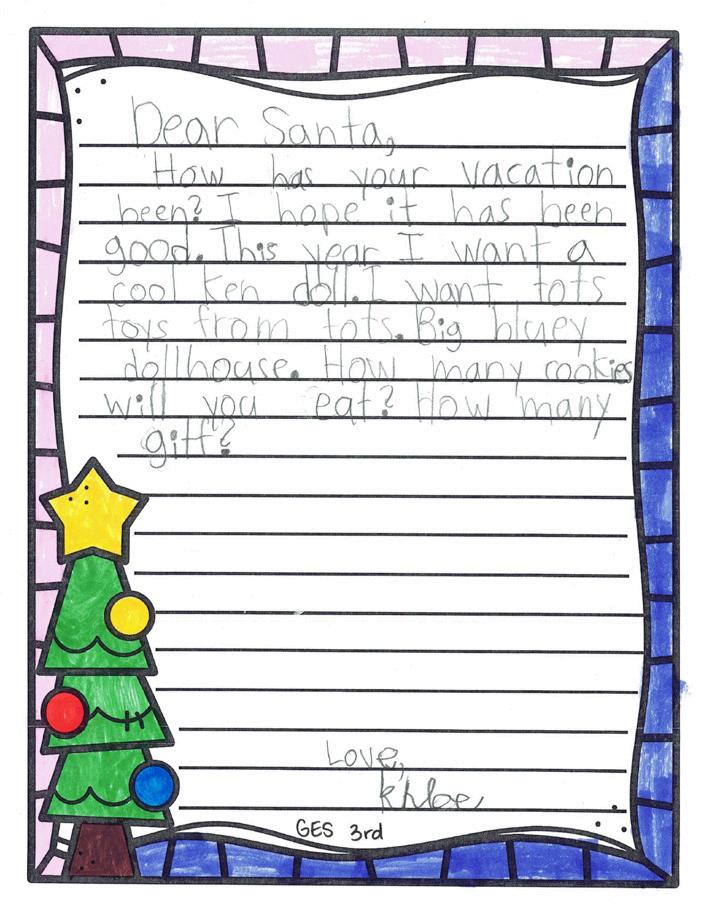 Dear Santa,
How has your vacation
been? I hope it has been
good. This year I want a
cool ken doll. I want tots
toys from tots. Big bluey
dollhouse. How many cookies
will you eat? How many
gift?
Love,
khloe
GES 3rd